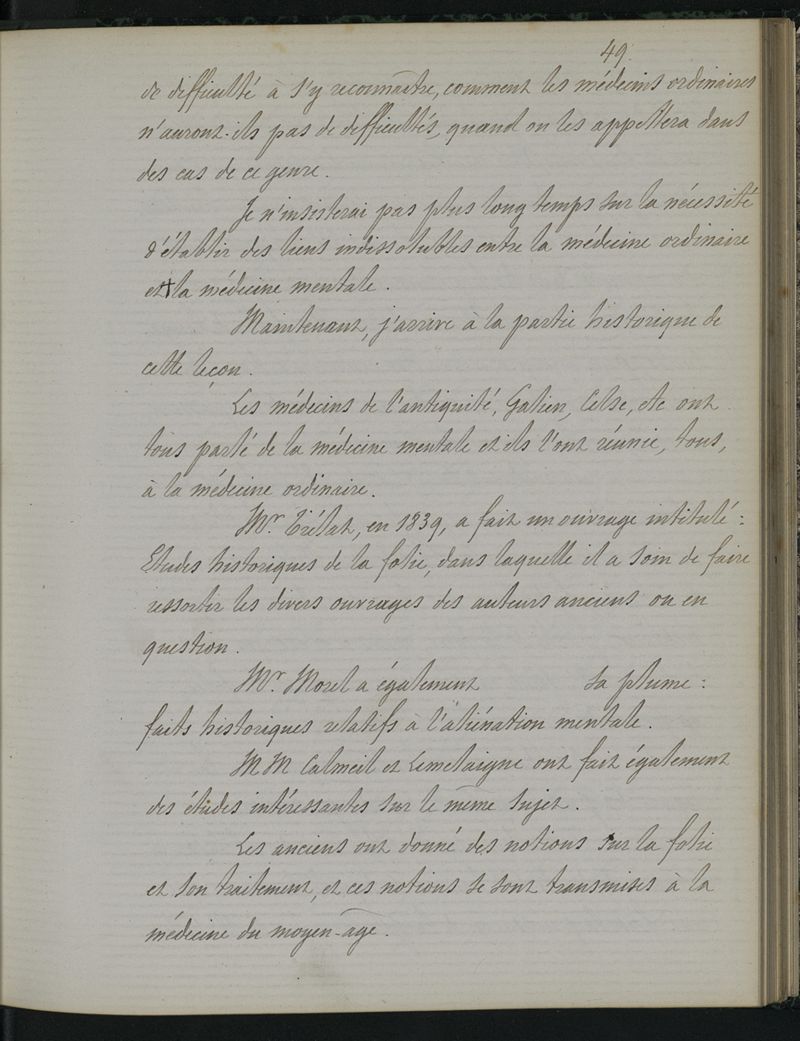 49.
de difficulté à s'y reconnaître, comment les médecins ordinaires
n'auront-ils pas de difficultés, quand on les appellera dans
des cas de ce genre.
Je n'insisterai pas plus long temps sur la nécessité
d'établir des liens indissolubles entre la médecine ordinaire
et la médecine mentale.
Maintenant, j'arrive à la partie historique de
cette leçon.
Les médecins de l'antiquité, Galien, Celse, etc ont
tous parlé de la médecine mentale et ils l'ont réunie, tous,
à la médecine ordinaire.
Mr. Trélat, en 1839, a fait un ouvrage intitulé :
Etudes historiques de la folie, dans laquelle il a soin de faire
ressortir les divers ouvrages des auteurs anciens ou en
question.
Mr. Morel a également sa plume :
faits historiques relatifs à l'aliénation mentale.
M M Calmeil et Lemelaigne ont fait également
des études intéressantes sur le même sujet.
Les anciens ont donné des notions sur la folie
et son traitement, et ces notions se sont transmises à la
médecine du moyen-âge.